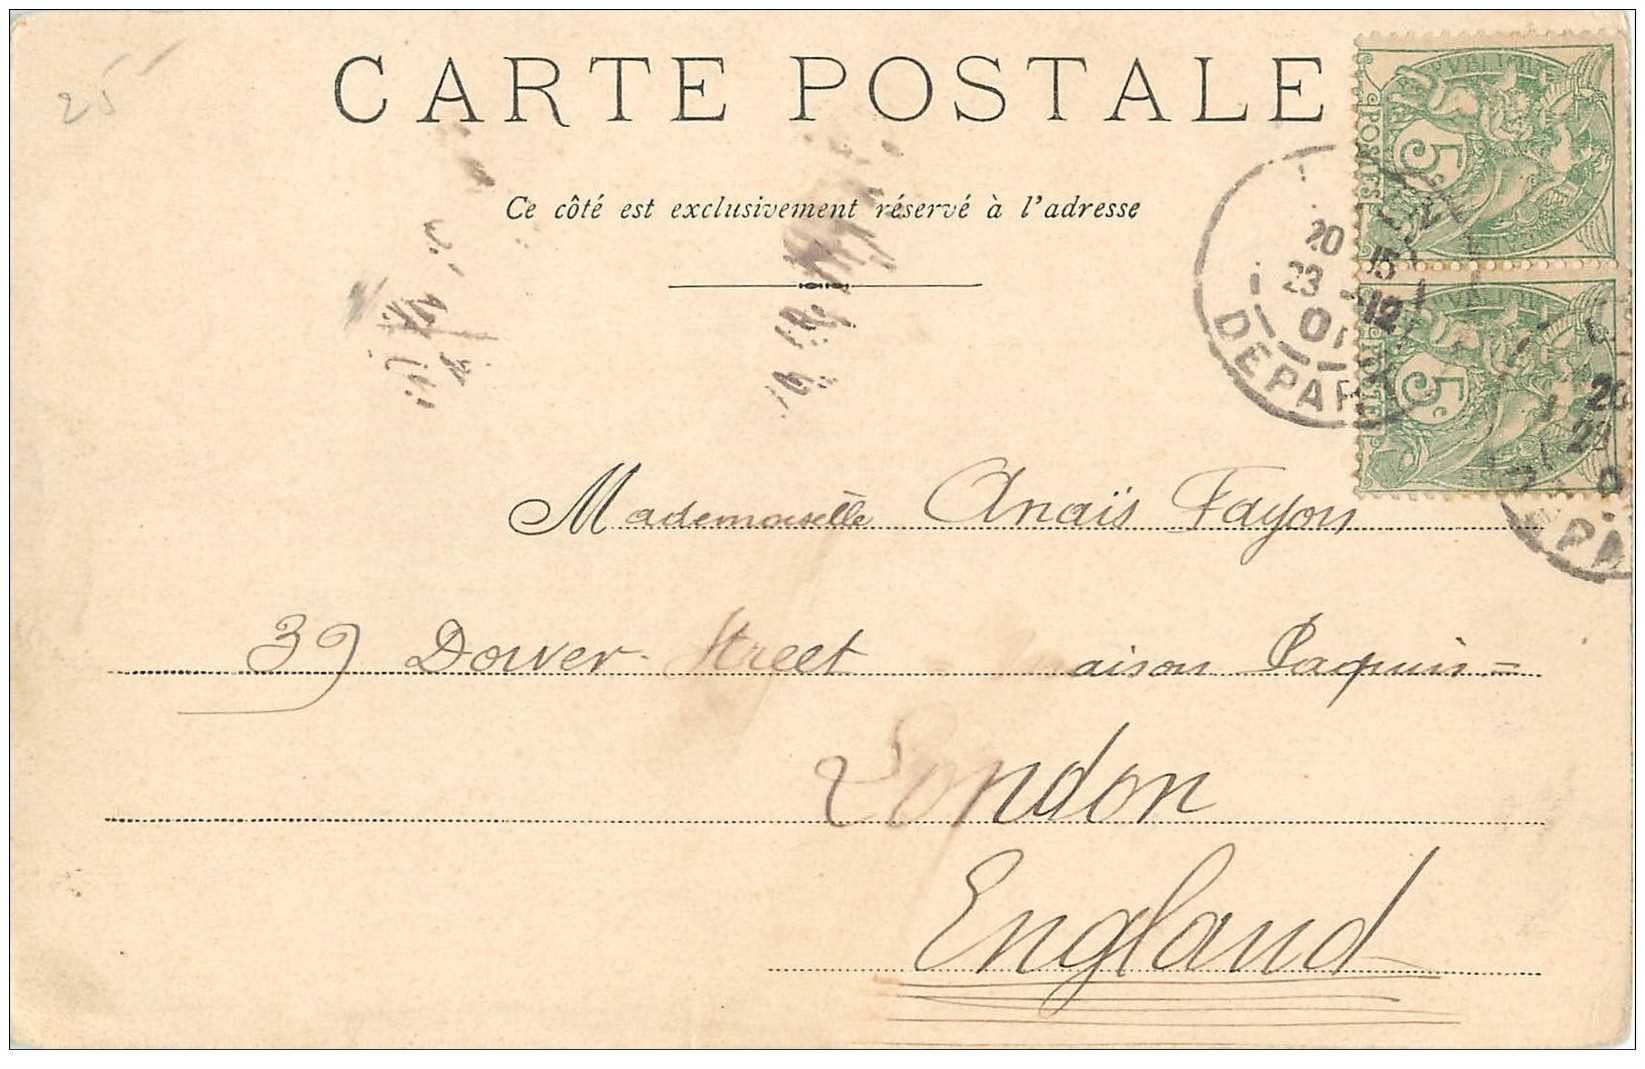 25
CARTE POSTALE
Ce côté est exclusivement réservé à l'adresse
POSTES
5c
POSTES
5c
20 15
23 12
01
DEPAR
20
23
PA
Mademoiselle Anaïs Fayon
39 Dower Street = maison Paquin =
London
England